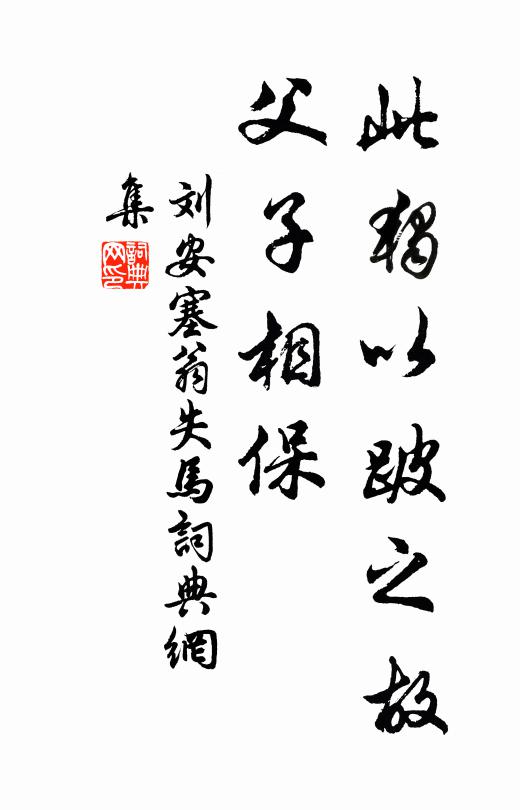 此独以跛之故
父子相保
刘安塞翁失馬詞典網
集
詞典
网印